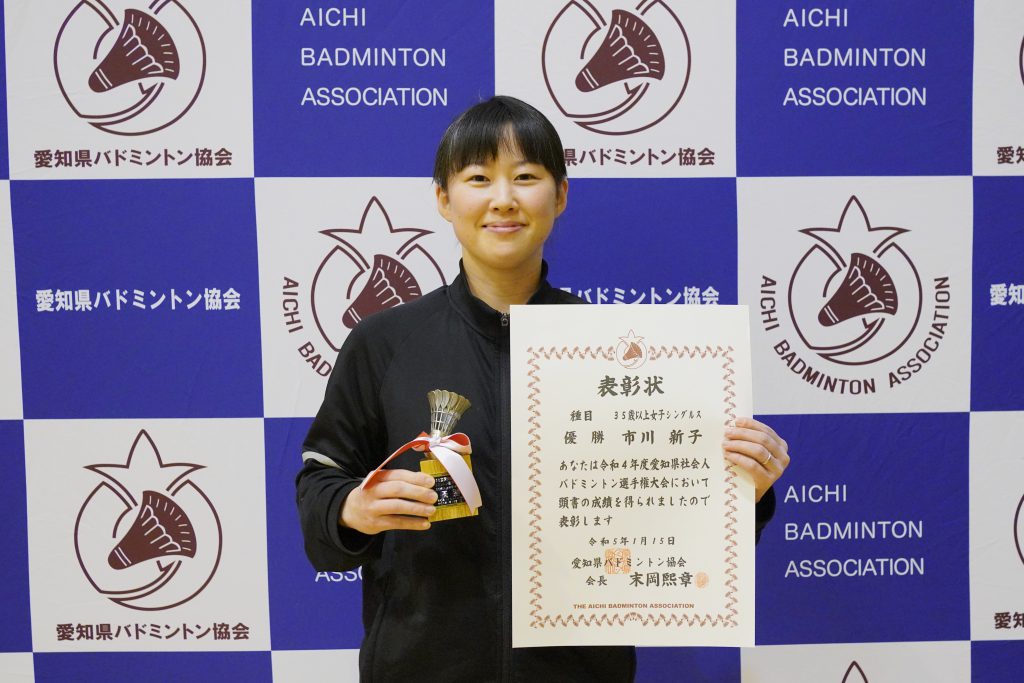 AICHI
BADMINTON
ASSOCIATION
AICHI
BADMINTON
ASSOCIATION
愛知県バドミントン協会
県バドミントン協会
愛知県バドミントン協会
AICHI BAD
バドミントン協会
AICHI BADMINTON ASSOCIATION
愛知
表彰状
種目 35歳以上女子シングルス
優勝 市川 新子
あなたは令和4年度愛知県社会人
バドミントン選手権大会において
頭書の成績を得られましたので
表彰します
令和5年1月15日
愛知県バドミントン協会
会長 末岡熙章
THE AICHI BADMINTON ASSOCIATION
AICHI
BADMINTON
ASSOCIATION
AICHI
愛知県バドミントン協会